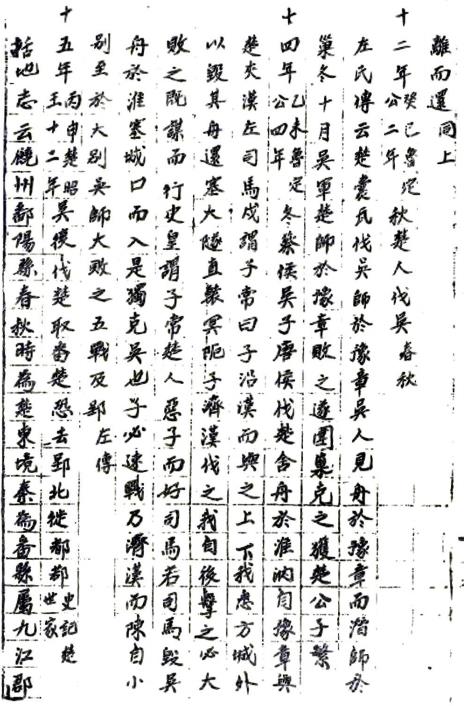 離而還同上
十二年癸巳魯定公二年秋楚人伐吳春秋
左氏傳云楚囊瓦伐吳師於豫章吳人見舟於豫章而潛師於
巢冬十月吳軍楚師於豫章敗之遂圍巢克之獲楚公子繁
十四年乙未魯定公四年冬蔡侯吳子唐侯伐楚舍舟於淮汭自豫章與
楚夾漢左司馬戍謂子常曰子沿漢而與之上下我悉方城外
以毀其舟還塞大隧直轅冥阨子濟漢伐之我自後擊之必大
敗之既謀而行史皇謂子常楚人惡子而好司馬若司馬毀吳
舟於淮塞城口而入是獨克吳也子必速戰乃濟漢而陳自小
別至於大別吳師大敗之五戰及郢左傳
十五年丙申楚昭王十二年吳復伐楚取番楚恐去郢北徙都鄀史記楚世家
括地志云饒州鄱陽縣春秋時為楚東境秦為番縣屬九江郡